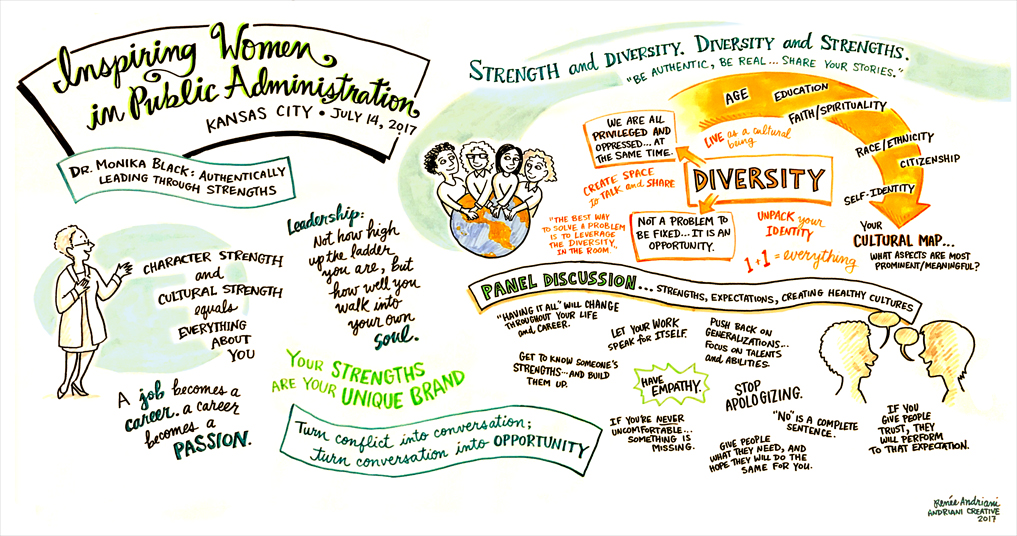 Inspiring Women
in Public Administration
KANSAS CITY • JULY 14, 2017
DR. MONIKA BLACK: AUTHENTICALLY
LEADING THROUGH STRENGTHS
CHARACTER STRENGTH
and
CULTURAL STRENGTH
equals
EVERYTHING
ABOUT
YOU
A job becomes a
career. a career
becomes a
PASSION.
Leadership:
Not how high
up the ladder
you are, but
how well you
walk into
your own
soul.
YOUR STRENGTHS
ARE YOUR UNIQUE BRAND
Turn conflict into conversation;
turn conversation into OPPORTUNITY
STRENGTH and DIVERSITY. DIVERSITY and STRENGTHS.
"BE AUTHENTIC, BE REAL... SHARE YOUR STORIES."
WE ARE ALL
PRIVILEGED AND
OPPRESSED... AT
THE SAME TIME.
LIVE as a cultural
being
CREATE SPACE
to TALK and SHARE
DIVERSITY
"THE BEST WAY
TO SOLVE A PROBLEM
IS TO LEVERAGE
THE DIVERSITY
IN THE ROOM."
NOT A PROBLEM TO
BE FIXED... IT IS AN
OPPORTUNITY.
UNPACK your
IDENTITY
1+1 = everything
AGE
EDUCATION
FAITH/SPIRITUALITY
RACE/ETHNICITY
CITIZENSHIP
SELF-IDENTITY
YOUR
CULTURAL MAP...
WHAT ASPECTS ARE MOST
PROMINENT/MEANINGFUL?
PANEL DISCUSSION... STRENGTHS, EXPECTATIONS, CREATING HEALTHY CULTURES
"HAVING IT ALL" WILL CHANGE
THROUGHOUT YOUR LIFE
and CAREER.
LET YOUR WORK
SPEAK FOR ITSELF.
PUSH BACK ON
GENERALIZATIONS...
FOCUS ON TALENTS
and ABILITIES.
GET TO KNOW SOMEONE'S
STRENGTHS... AND BUILD
THEM UP.
HAVE
EMPATHY.
STOP
APOLOGIZING.
"NO" IS A COMPLETE
SENTENCE.
IF YOU'RE NEVER
UNCOMFORTABLE...
SOMETHING IS
MISSING.
GIVE PEOPLE
WHAT THEY NEED, AND
HOPE THEY WILL DO THE
SAME FOR YOU.
IF YOU
GIVE PEOPLE
TRUST, THEY
WILL PERFORM
TO THAT EXPECTATION.
Renée Andriani
ANDRIANI CREATIVE
2017